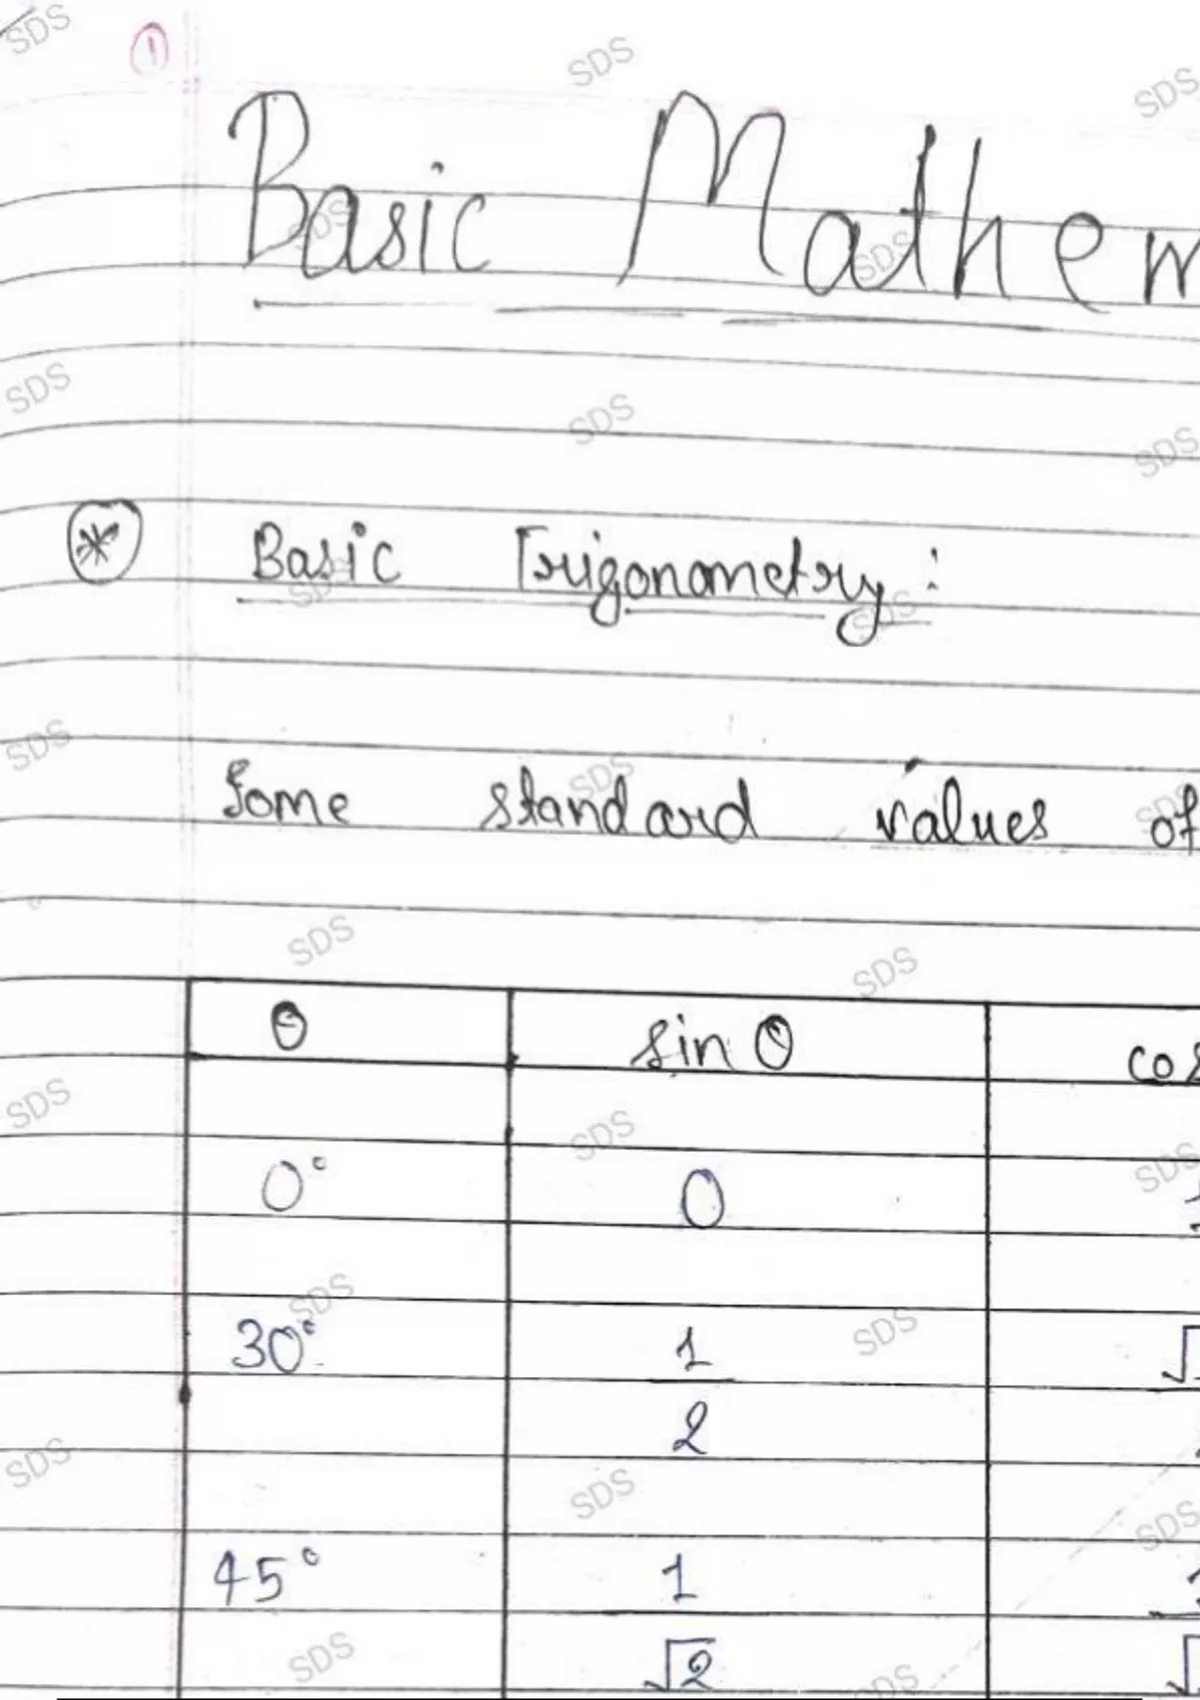 ①
Basic Mathem
* Basic Trigonometry :
Some standard values of
θ sin θ cos
0° 0
30° 1/2 √
45° 1/√2 √
SDS